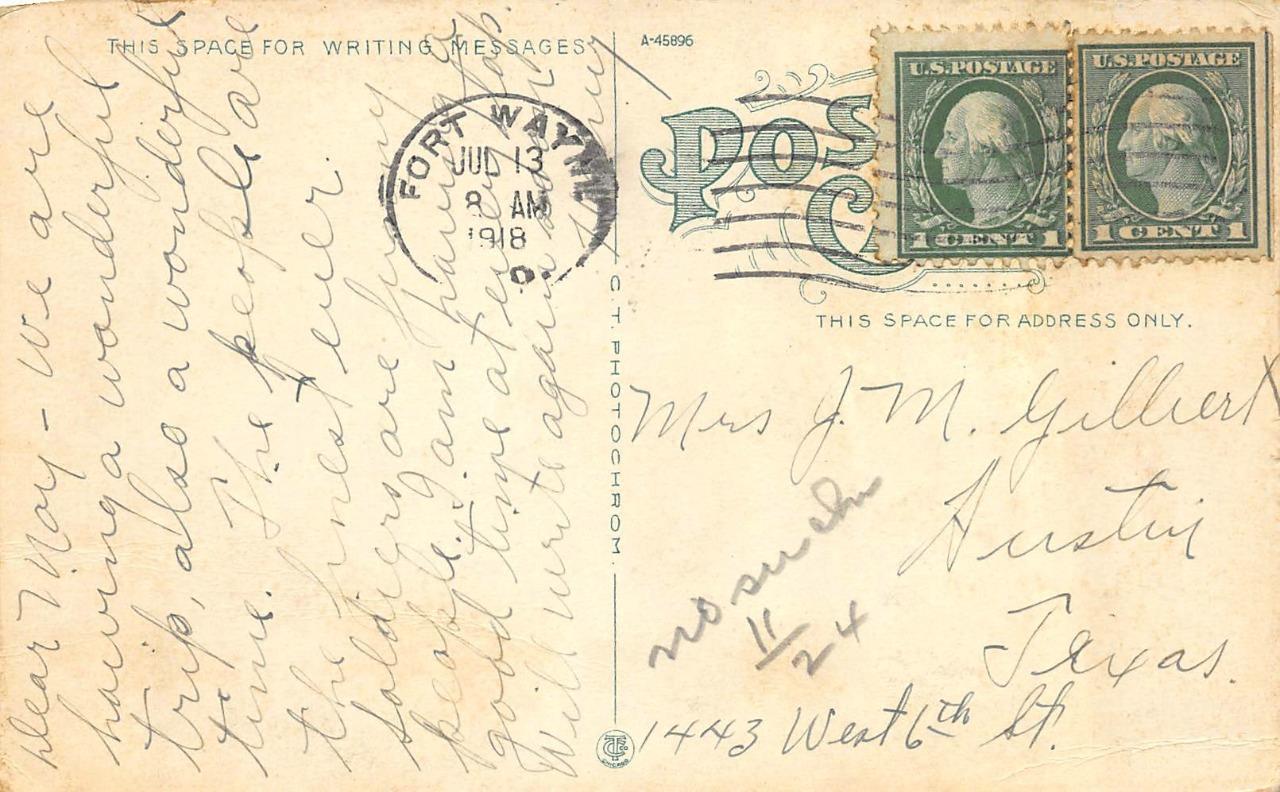 THIS SPACE FOR WRITING MESSAGES
A-45896
Dear May - We are
having a wonderful
trip, also a wonderful
time. The people are
the finest ever.
Soldiers are funny
people. I am having a
good time at every stop.
Will write again soon.
FORT WAYNE
JUL 13
8 AM
1918
POS
C
U.S. POSTAGE
1 CENT 1
U.S. POSTAGE
1 CENT 1
C. T. PHOTOCHROM
THIS SPACE FOR ADDRESS ONLY.
Mrs J. M. Gilbert
Austin
Texas.
1443 West 6th St.
no such
11
24
CHICAGO